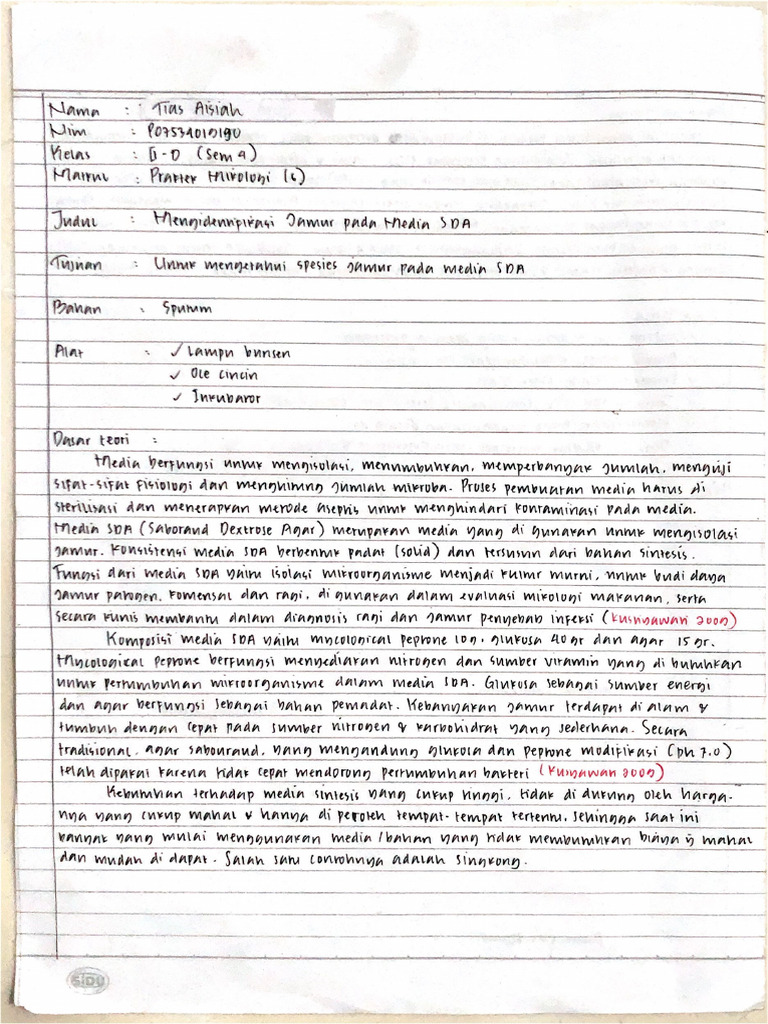 Nama : Tias Aisiah
Nim : P07534019190
Kelas : II-D (Sem 4)
Matkul : Praktek Mikologi (6)
Judul : Mengidentifikasi Jamur pada Media SDA
Tujuan : Untuk mengetahui spesies jamur pada media SDA
Bahan : Sputum
Alat : ✓ Lampu bunsen
✓ Ose cincin
✓ Inkubator
Dasar teori :
Media berfungsi untuk mengisolasi, menumbuhkan, memperbanyak jumlah, menguji
sifat-sifat fisiologi dan menghitung jumlah mikroba. Proses pembuatan media harus di
sterilisasi dan menerapkan metode aseptis untuk menghindari kontaminasi pada media.
Media SDA (Saboraud Dextrose Agar) merupakan media yang di gunakan untuk mengisolasi
jamur. Konsistensi media SDA berbentuk padat (solid) dan tersusun dari bahan sintesis.
Fungsi dari media SDA yaitu isolasi mikroorganisme menjadi kultur murni, untuk budi daya
jamur patogen, komensal dan ragi, di gunakan dalam evaluasi mikologi makanan, serta
secara klinis membantu dalam diagnosis ragi dan jamur penyebab infeksi (Kusnyawan 2009)
Komposisi media SDA yaitu mycological peptone 10g, glukosa 40 gr dan agar 15 gr.
Mycological Peptone berfungsi menyediakan nitrogen dan sumber vitamin yang di butuhkan
untuk pertumbuhan mikroorganisme dalam media SDA. Glukosa sebagai sumber energi
dan agar berfungsi sebagai bahan pemadat. Kebanyakan jamur terdapat di alam &
tumbuh dengan cepat pada sumber nitrogen & karbohidrat yang sederhana. Secara
tradisional, agar sabouraud, yang mengandung glukosa dan peptone modifikasi (ph 7.0)
telah dipakai karena tidak cepat mendorong pertumbuhan bakteri (Kusyawan 2009)
Kebutuhan terhadap media sintesis yang cukup tinggi, tidak di dukung oleh harga-
nya yang cukup mahal & hanya di peroleh tempat-tempat tertentu, sehingga saat ini
banyak yang mulai menggunakan media/bahan yang tidak membutuhkan biaya yg mahal
dan mudah di dapat. Salah satu contohnya adalah singkong.
SIDU